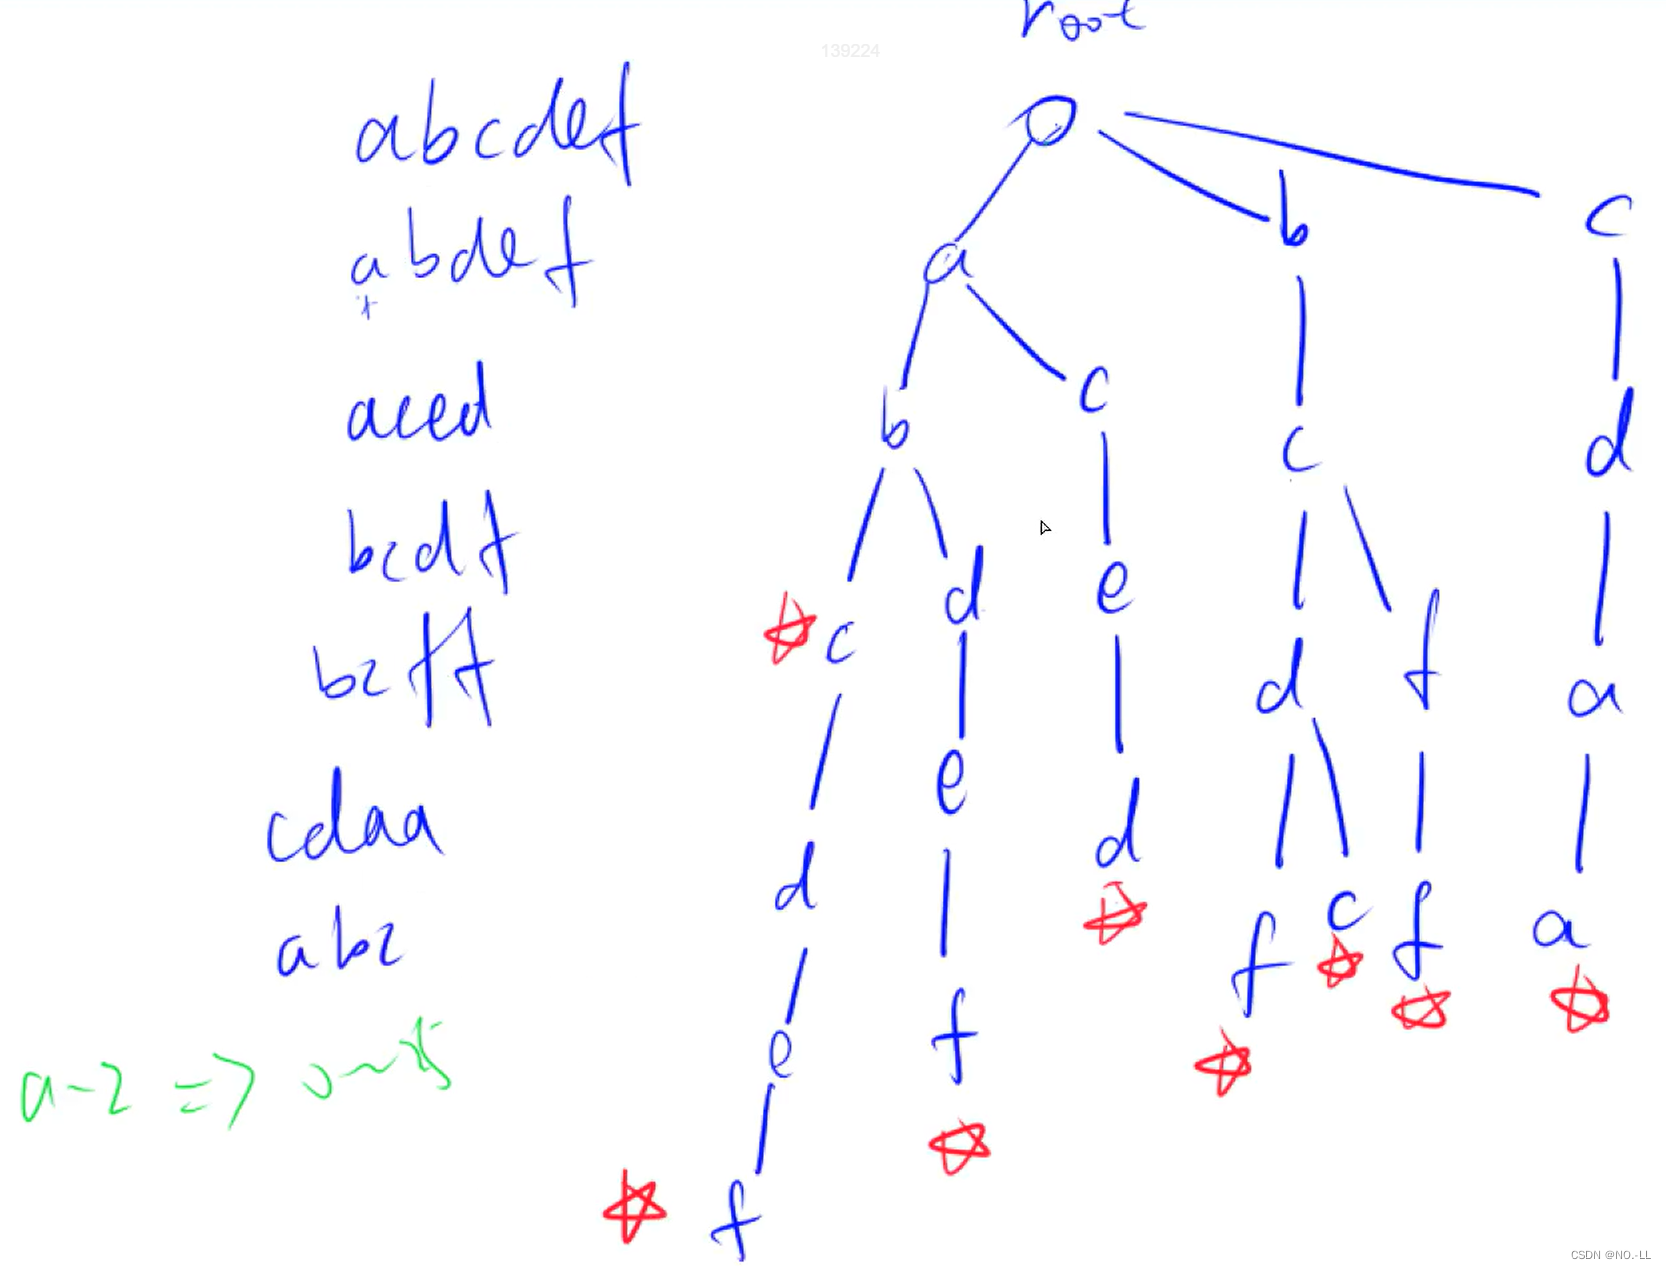 root
139224
abcdef
abdef
aced
bcdf
bcff
cdaa
abc
a-z => 0~25
a b c
b c c d
c d e d f a
d e d f c f a
e f
f
CSDN @NO.-LL